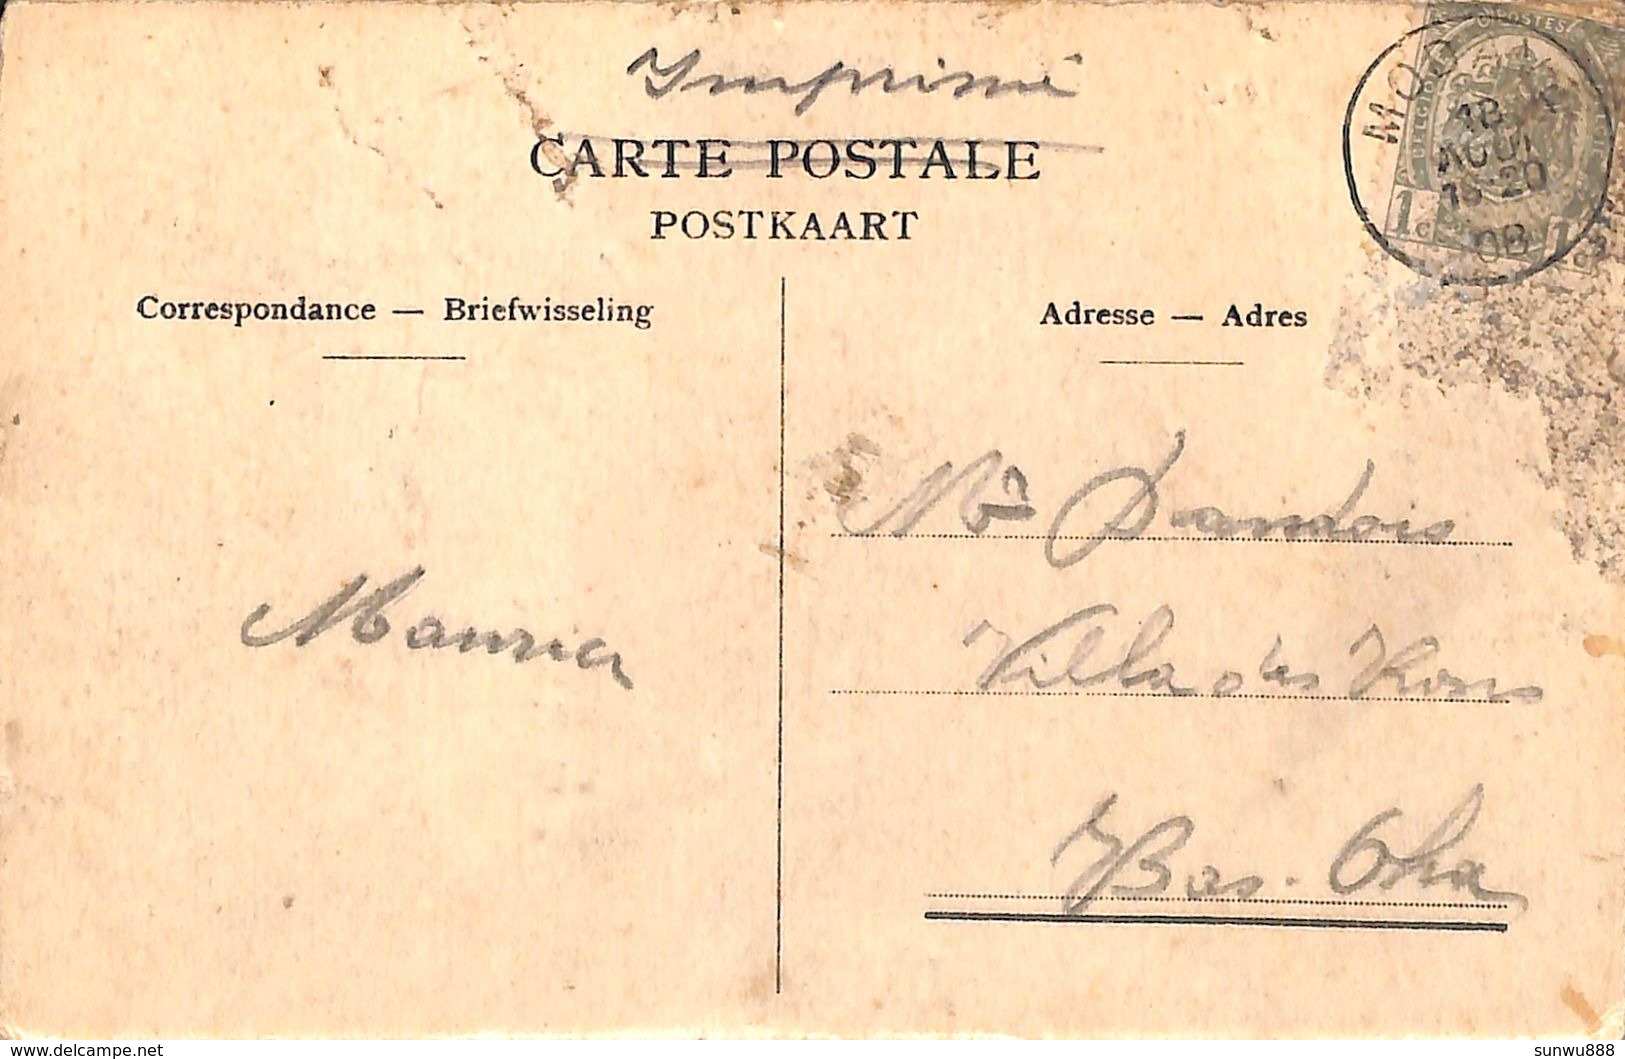 Imprimé
CARTE POSTALE
POSTKAART
Correspondance — Briefwisseling
Adresse — Adres
MOO
18
AOUT
18-20
08
1c 1c
Mr Dandois
Villa des Roses
Bas-Oha
Maurice
sunwu888